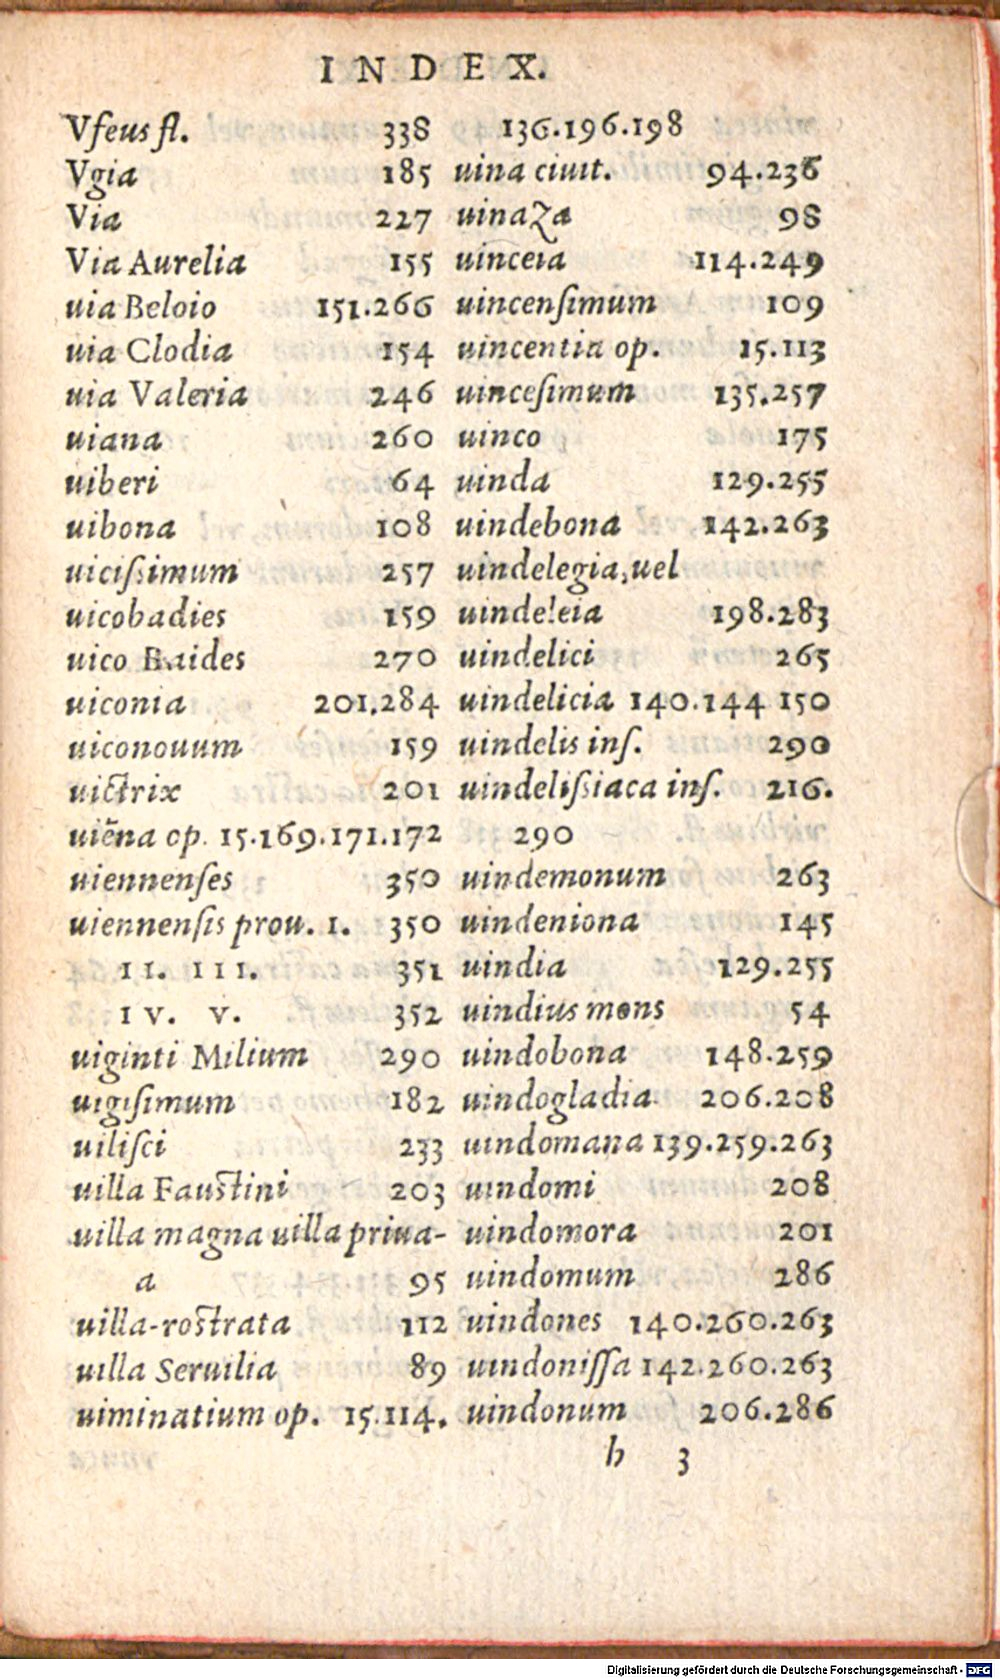 INDEX.
Vfeus fl. 338
Vgia 185
Via 227
Via Aurelia 155
uia Beloio 151.266
uia Clodia 154
uia Valeria 246
uiana 260
uiberi 64
uibona 108
uiciſsimum 257
uicobadies 159
uico Baides 270
uiconia 201.284
uiconouum 159
uictrix 201
uiēna op. 15.169.171.172
uiennenſes 350
uiennenſis prou. I. 350
II. III. 351
IV. V. 352
uiginti Milium 290
uigiſimum 182
uiliſci 233
uilla Fauſtini 203
uilla magna uilla priua-
a 95
uilla-roſtrata 112
uilla Seruilia 89
uiminatium op. 15.114.
136.196.198
uina ciuit. 94.236
uinaza 98
uinceia 114.249
uincenſimum 109
uincentia op. 15.113
uinceſimum 135.257
uinco 175
uinda 129.255
uindebona 142.263
uindelegia, uel
uindeleia 198.283
uindelici 265
uindelicia 140.144 150
uindelis inſ. 290
uindeliſsiaca inſ. 216.
290
uindemonum 263
uindeniona 145
uindia 129.255
uindius mons 54
uindobona 148.259
uindogladia 206.208
uindomana 139.259.263
uindomi 208
uindomora 201
uindomum 286
uindones 140.260.263
uindoniſſa 142.260.263
uindonum 206.286
h 3
Digitalisierung gefördert durch die Deutsche Forschungsgemeinschaft - DFG